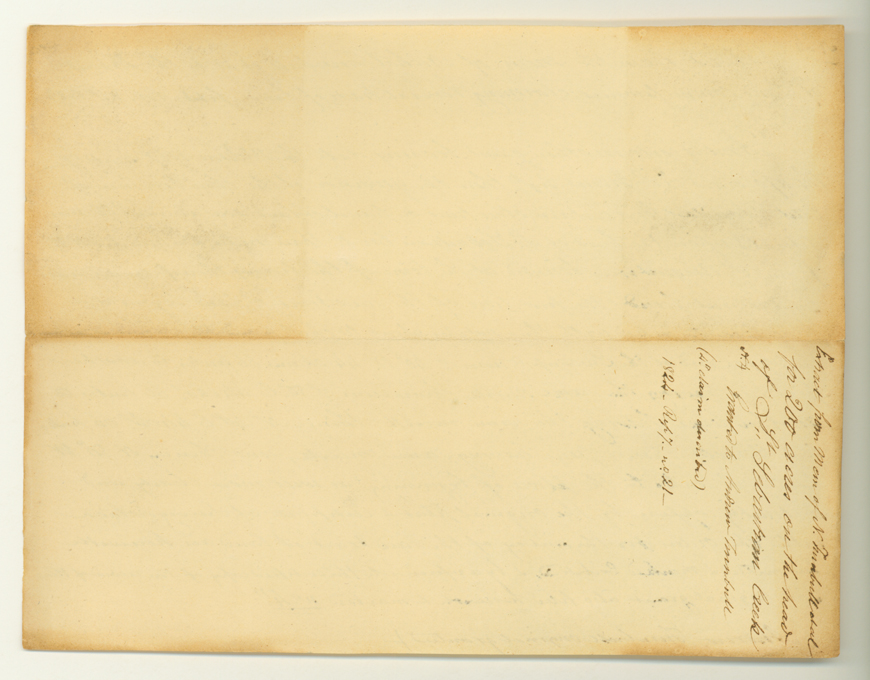 Extract from Mem of N. Turnbull et al
for 200 acres on the head
of St Sebastian Creek
Granted to Andrew Turnbull
(St claim described)
1824 - Rep 7 - no 21 -